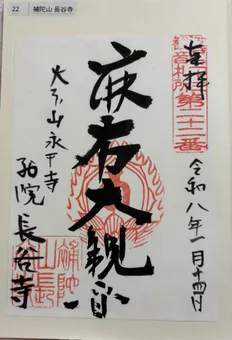 22 補陀山 長谷寺
奉拝
令和八年一月十四日
第二十二番
麻布大観音
大本山永平寺
別院
長谷寺